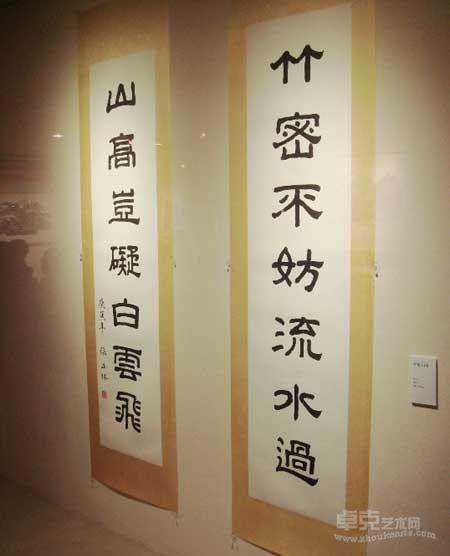 竹密不妨流水過
山高豈礙白雲飛
庚寅年
卓克艺术网
www.zhuokearts.com